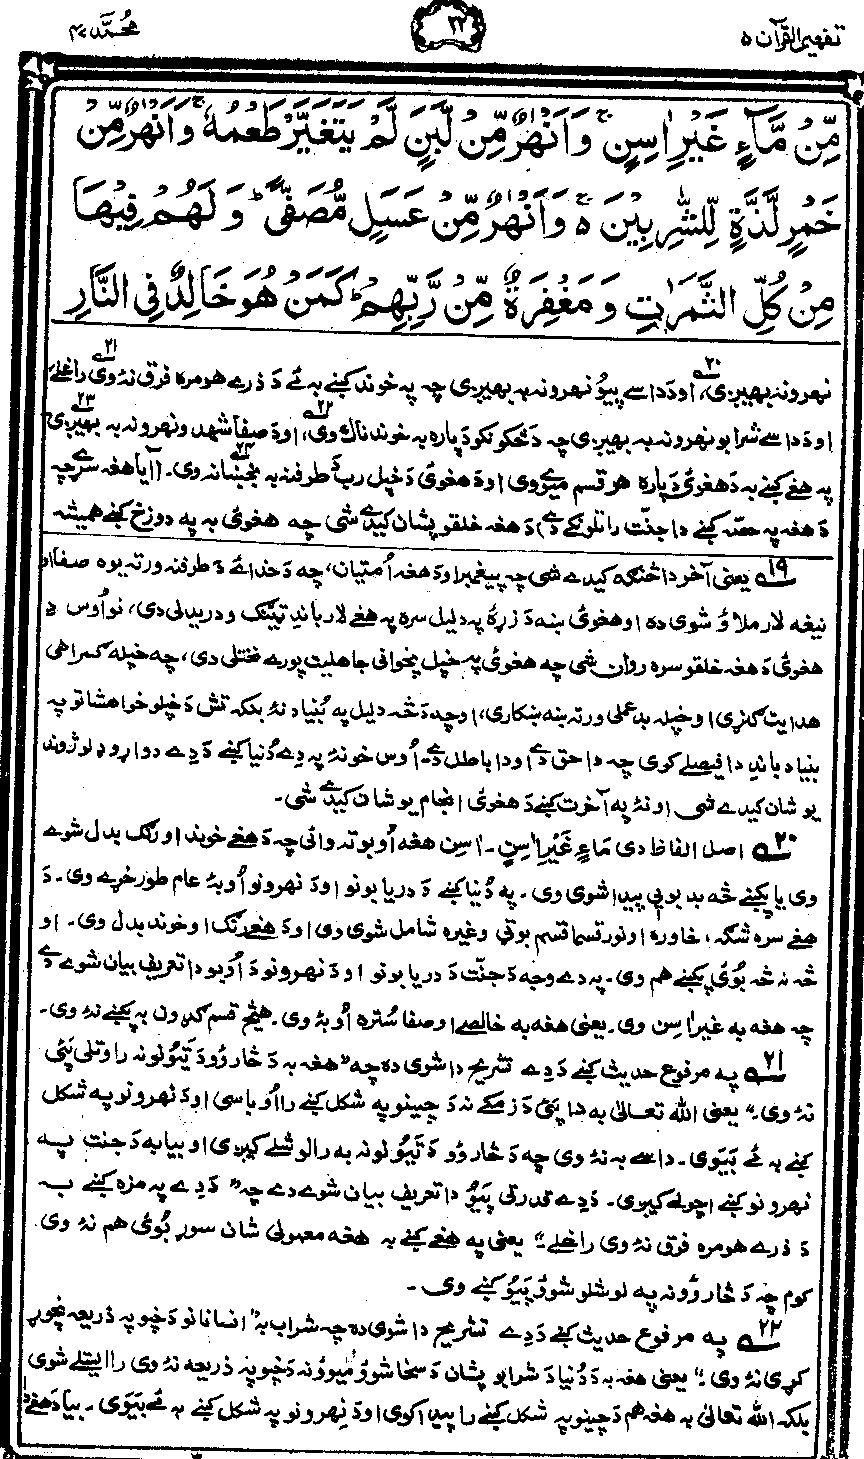 تفهيم القرآن ۵
۲۲
مُحمَّد ۴۷
مِّنْ مَّآءٍ غَيْرِ اٰسِنٍ ۚ وَاَنْهٰرٌ مِّنْ لَّبَنٍ لَّمْ يَتَغَيَّرْ طَعْمُهٗ ۚ وَاَنْهٰرٌ مِّنْ
خَمْرٍ لَّذَّةٍ لِّلشّٰرِبِيْنَ ۚ وَاَنْهٰرٌ مِّنْ عَسَلٍ مُّصَفًّى ؕ وَلَهُمْ فِيْهَا
مِنْ كُلِّ الثَّمَرٰتِ وَمَغْفِرَةٌ مِّنْ رَّبِّهِمْ ؕ كَمَنْ هُوَ خَالِدٌ فِى النَّارِ
نهرونه بهيږي،۲۰ او دداسے پيؤ نهرونه به بهيږي چه په خوند کښے به ئے دَ ذرے هومره فرق نۀ وى راغلے،۲۱
او دداسے شرابو نهرونه به بهيږي چه دَ څکونکو دَپاره به خوندناک وى،۲۲ او دَ صفا شهدو نهرونه به بهيږي۲۳
په هغے کښے به دَ هغوئ دَپاره هر قسم ميوے وى او دَ هغوئ دَ خپل رب دَ طرفنه به بخښنانه وى۔۲۴ (آيا هغه سړے چه
دَ هغه په حصه کښے دا جنّت راتلونکے دے) دَ هغه خلقو پشان کيدے شى چه هغوئ به په دوزخ کښے هميشه
۱۹ يعنى آخر دا څنګه کيدے شى چه پيغمبر او دَ هغه اُمتيان، چه دَ خدائے دَ طرفنه ورته يوه صفا او
نيغه لار ملاؤ شوى ده او هغوئ بنه دَ زړۀ په دليل سره په هغے لار باندِ ټينګ ودريدلى دى، نو اُوس دِ
هغوئ دَ هغه خلقو سره روان شى چه هغوئ په خپل پخوانى جاهليت پورے نختلى دى، چه خپله ګمراهى
هدايت ګنړى او خپله بدعملى ورته بنه ښکارى، او چه دَ څه دليل په بُنياد نۀ بلکه تش دَ خپلو خواهشاتو په
بنياد باندِ دا فيصلے کوى چه دا حق دے او دا باطل دے۔ اُوس خو نۀ په دے دُنيا کښے دَ دے دواړو ډلو ژوند
يو شان کيدے شى او نۀ په آخرت کښے دَ هغوئ انجام يو شان کيدے شى۔
۲۰ اصل الفاظ دى مَاءٍ غَيْرِ اٰسِنٍ ۔ اٰسِن هغه اُوبو ته وائى چه دَ هغے خوند او رنګ بدل شوے
وى يا پکښے څه بدبوئى پيدا شوى وى ۔ په دُنيا کښے دَ درياب‌ونو او دَ نهرونو اُوبۀ عام طور خړے وى ۔ دَ
هغے سره شګه، خاوره او نور قسما قسم بوټى وغيره شامل شوى وى او دَ هغے رنګ او خوند بدل وى ۔ او
څه نه څه بُوئى پکښے هم وى۔ په دے وجه دَ جنّت دَ دريابونو او دَ نهرونو دَ اُوبو دا تعريف بيان شوے دے
چه هغه به غير اٰسن وى ۔ يعنى هغه به خالصے او صفا سُتره اُوبۀ وى ۔ هيڅ قسم ګډون به پکښے نۀ وى۔
۲۱ په مرفوع حديث کښے دَ دے تشريح دا شوى ده چه "هغه به دَ څاروؤ دَ تيونولو نه راوتلى پئى
نۀ وى" يعنى الله تعالىٰ به دا پئى دَ زمکے نه دَ چينو په شکل کښے رااُوباسى او دَ نهرونو په شکل
کښے به ئے بَيَوى ۔ داسے به نۀ وى چه دَ څاروؤ دَ تيونولو نه به رالوشلے کيږي او بيا به دَ جنت په
نهرونو کښے اچولے کيږي ۔ دَ دے قدرتى پَيُؤ دا تعريف بيان شوے دے چه "دَ دے په مزه کښے به
دَ ذرے هومره فرق نۀ وى راغلے" يعنى په هغے کښے به هغه معمولى شان سوړ بُوئى هم نۀ وى
کوم چه دَ څاروؤ نه په لوشلو شوؤ پَيُؤ کښے وى ۔
۲۲ په مرفوع حديث کښے دَ دے تشريح دا شوى ده چه شراب به "انسانانو دَ خپو په ذريعه نچوړ
کړى نۀ وى" يعنى هغه به دَ دُنيا دَ شرابو پشان دَ سخا شوؤ ميوؤ نه دَ خپو په ذريعه نۀ وى راايستلے شوى
بلکه الله تعالىٰ به هغه هم دَ چينو په شکل کښے را پيدا کوى او دَ نهرونو په شکل کښے به ئے بَيَوى ۔ بيا دَ هغے